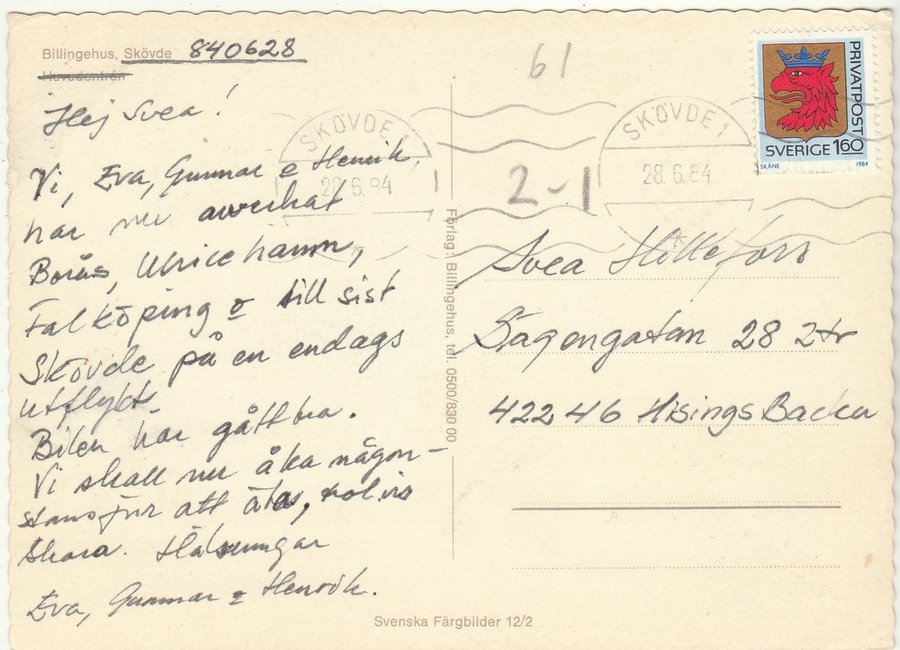 Billingehus, Skövde 840628
Huvudentrén
Hej Svea!
Vi, Eva, Gunnar o Henrik,
har nu avverkat
Borås, Ulricehamn,
Falköping o till sist
Skövde på en endags
utflykt.
Bilen har gått bra.
Vi skall nu åka någon-
stans för att äta,
Skara. Hälsningar
Eva, Gunnar o Henrik.
Förlag: Billingehus, tel. 0500/830 00
Svenska Färgbilder 12/2
61
2-1
SKÖVDE 1
28.6.84
SKÖVDE 1
28.6.84
PRIVATPOST
SVERIGE 160
SKÅNE 1984
Svea Hillefors
Sägengatan 28 2tr
422 46 Hisings Backa